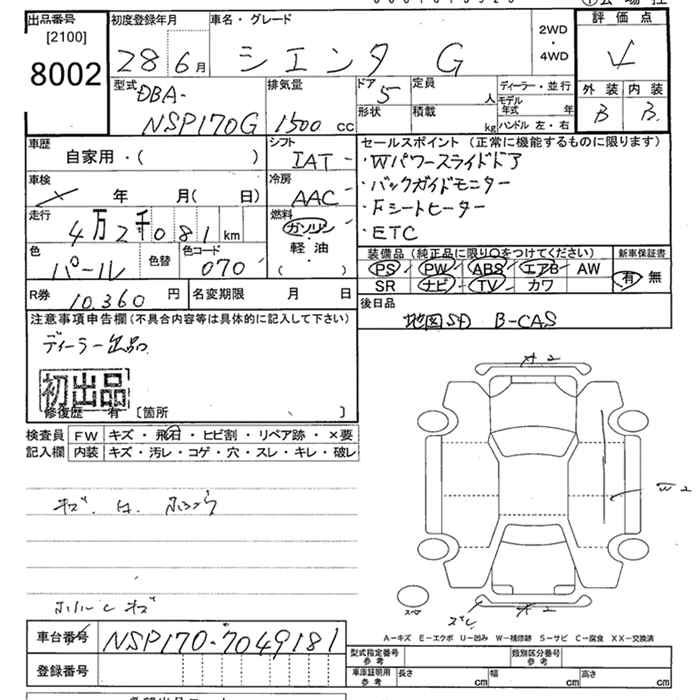 出品番号
[2100]
8002
初度登録年月
28 6月
車名・グレード
シエンタ G
2WD
・
4WD
評価点
4
外装 内装
B B
型式
DBA-
NSP170G
排気量
1500 cc
ドア
5
形状
定員
人
積載
kg
ディーラー・並行
モデル年式 年
ハンドル 左・右
車歴
自家用・( )
車検
年 月( 日)
走行
4万2千081km
色
パール
色替
色コード
070
シフト
IAT
冷房
AAC
燃料
ガソリン
・
軽・油
・
( )
R券
10,360 円
名変期限 月 日
セールスポイント (正常に機能するものに限ります)
・Wパワースライドドア
・バックガイドモニター
・Fシートヒーター
・ETC
装備品 (純正品に限り○をつけてください)
PS PW ABS エアB AW
SR ナビ TV カワ
新車保証書
有 無
後日品
地図SD B-CAS
注意事項申告欄(不具合内容等は具体的に記入して下さい)
ディーラー出品
初出品
修復歴 有 [箇所 ]
検査員
記入欄
FW キズ・飛石・ヒビ割・リペア跡・×要
内装 キズ・汚レ・コゲ・穴・スレ・キレ・破レ
W2
スペア
A-キズ E-エクボ U-凹み W-補修跡 S-サビ C-腐食 XX-交換済
車台番号 NSP170-7049181
登録番号
型式指定番号
参考
類別区分番号
参考
車庫証明用
参考
長さ cm 幅 cm 高さ cm